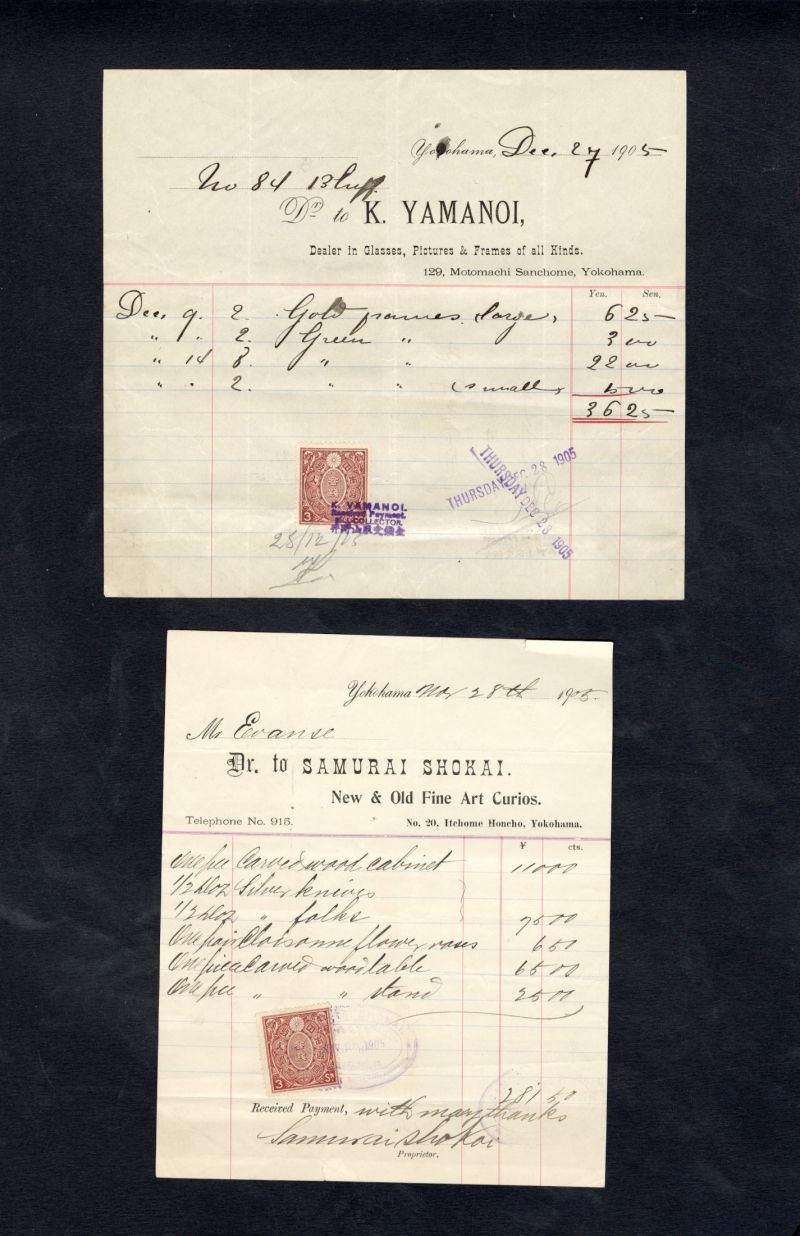 Yokohama, Dec. 27 1905
No 84 Bluff.
Dr to K. YAMANOI,
Dealer in Glasses, Pictures & Frames of all Kinds.
129, Motomachi Sanchome, Yokohama.
Yen. Sen.
Dec. 9. 2. Gold frames. (large, 6 25
" " 2. Green " 3 00
" 14 8. " " 22 00
" " 2. " " (small, 5 00
36 25
THURSDAY DEC 28 1905
THURSDAY DEC 28 1905
3
K. YAMANOI.
Received Payment.
COLLECTOR
28/12/05
Yokohama Nov 28th 1905
Mr Evanse
Dr. to SAMURAI SHOKAI.
New & Old Fine Art Curios.
Telephone No. 915. No. 20, Itchome Honcho, Yokohama.
¥ cts.
One pce Carved wood cabinet 110 00
1/2 doz Silver knives
1/2 doz " folks 75 00
One pair Cloisonne flower vases 6 50
One piece Carved wood table 65 00
One pce " " stand 25 00
1905
3 Sn
281 50
Received Payment, with many thanks
Samurai Shokai
Proprietor.